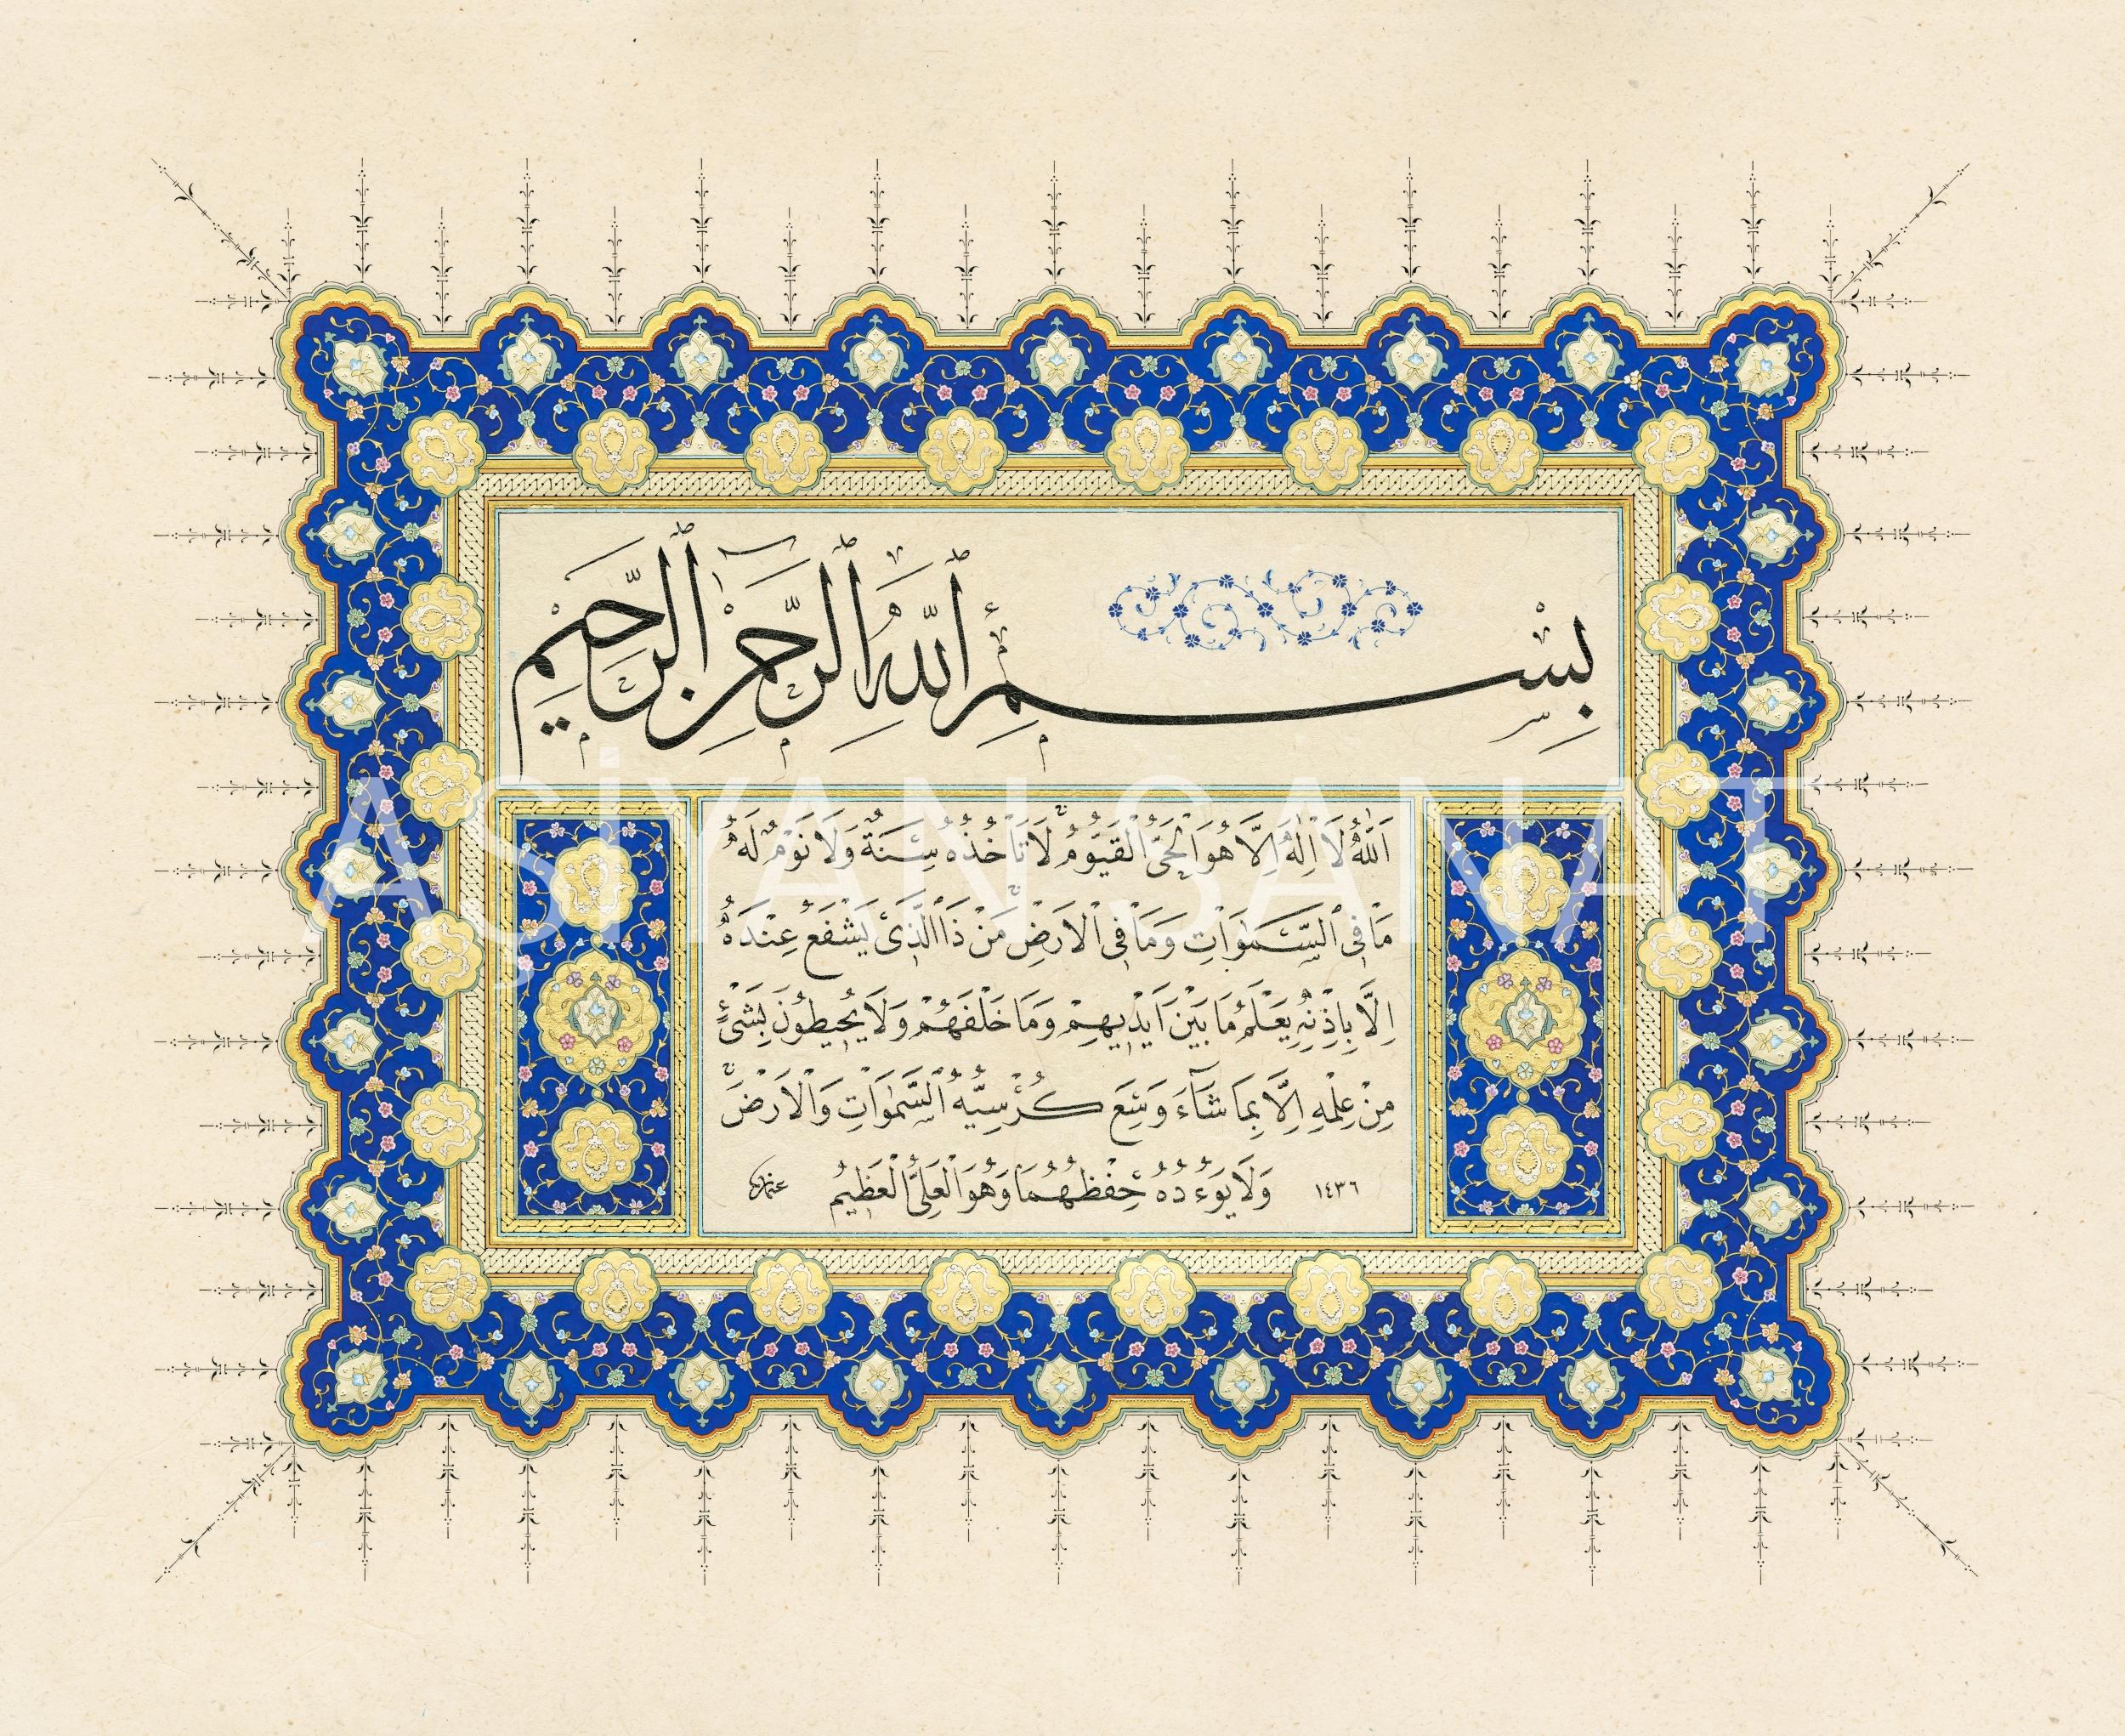 بِسْمِ ٱللَّهِ ٱلرَّحْمٰنِ ٱلرَّحِيمِ
اَللّٰهُ لَا اِلٰهَ اِلَّا هُوَ الْحَىُّ الْقَيُّومُ لَا تَأْخُذُهُ سِنَةٌ وَلَا نَوْمٌ لَهُ
مَا فِى السَّمٰوَاتِ وَمَا فِى الْاَرْضِ مَنْ ذَا الَّذِى يَشْفَعُ عِنْدَهُ
اِلَّا بِاِذْنِهِ يَعْلَمُ مَا بَيْنَ اَيْدِيهِمْ وَمَا خَلْفَهُمْ وَلَا يُحِيطُونَ بِشَىْءٍ
مِنْ عِلْمِهِ اِلَّا بِمَا شَاءَ وَسِعَ كُرْسِيُّهُ السَّمٰوَاتِ وَالْاَرْضَ
١٤٣٦ وَلَا يَؤُدُهُ حِفْظُهُمَا وَهُوَ الْعَلِىُّ الْعَظِيمُ
AŞİYAN SANAT